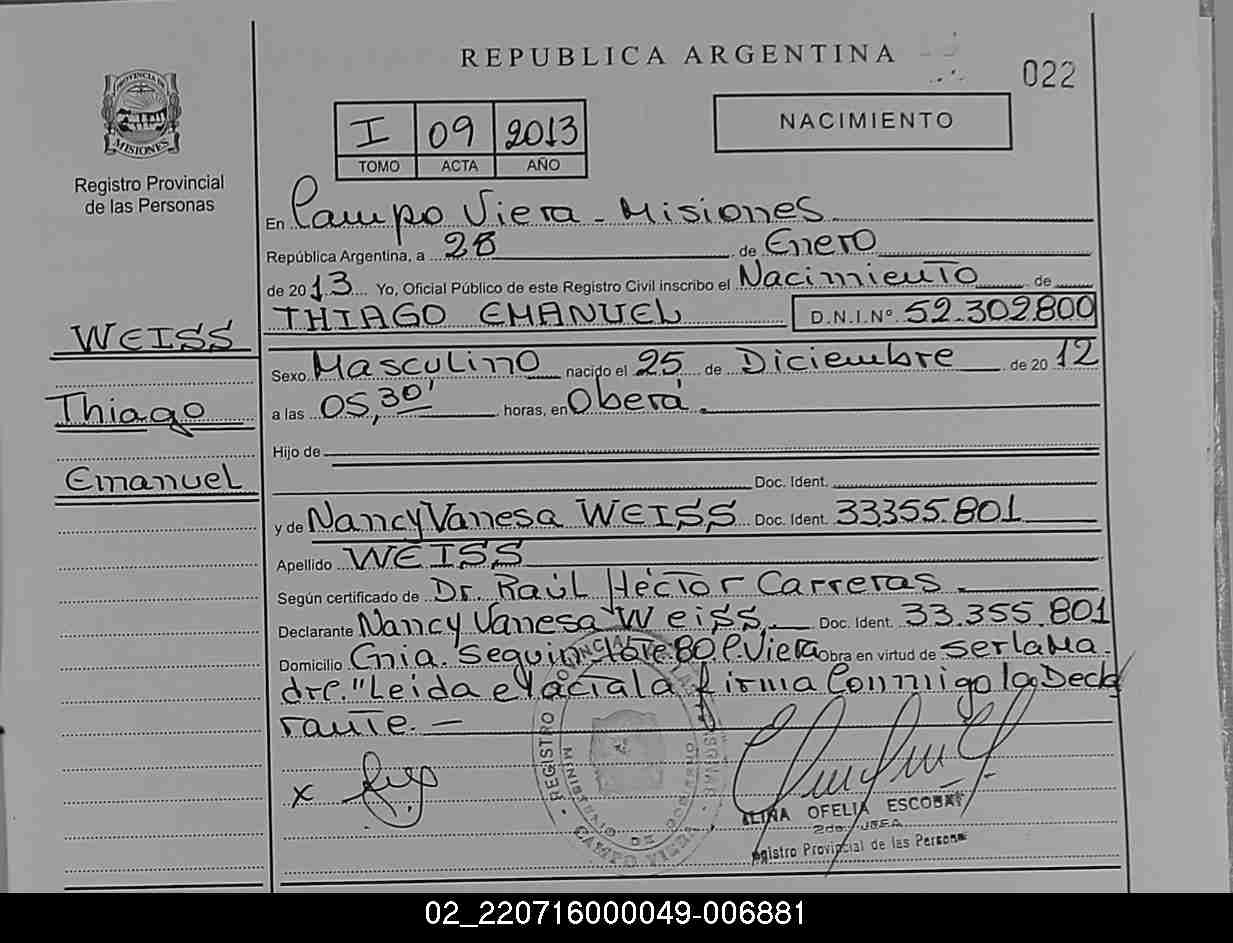 REPUBLICA ARGENTINA
022
I 09 2013
TOMO ACTA AÑO
NACIMIENTO
PROVINCIA DE
MISIONES
Registro Provincial
de las Personas
WEISS
Thiago
Emanuel
En Campo Viera - Misiones
República Argentina, a 28 de Enero
de 2013 Yo, Oficial Público de este Registro Civil inscribo el Nacimiento de
THIAGO EMANUEL D.N.I.Nº 52.302.800
Sexo Masculino nacido el 25 de Diciembre de 2012
a las 05,30' horas, en Oberá.
Hijo de
Doc. Ident.
y de Nancy Vanesa WEISS Doc. Ident. 33355.801
Apellido WEISS
Según certificado de Dr. Raúl Héctor Carreras.
Declarante Nancy Vanesa Weiss. Doc. Ident. 33.355.801
Domicilio Cnia. Seguin 80 C. Viera Obra en virtud de ser la Ma-
dre. "Leida el acta la firma Conmigo la Decla
rante. —
x
REGISTRO PROVINCIAL DE LAS PERSONAS
MINISTERIO DE GOBIERNO
CAMPO VIERA
OFELIA ESCOBAR
2da. JEFA
Registro Provincial de las Personas
02_220716000049-006881